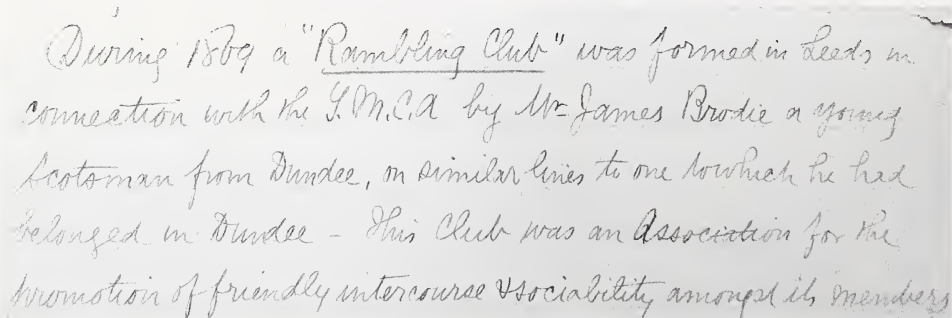 During 1869 a "Rambling Club" was formed in Leeds in
connection with the Y.M.C.A by Mr James Brodie a young
Scotsman from Dundee, on similar lines to one to which he had
belonged in Dundee – This Club was an Association for the
promotion of friendly intercourse & sociability amongst its members